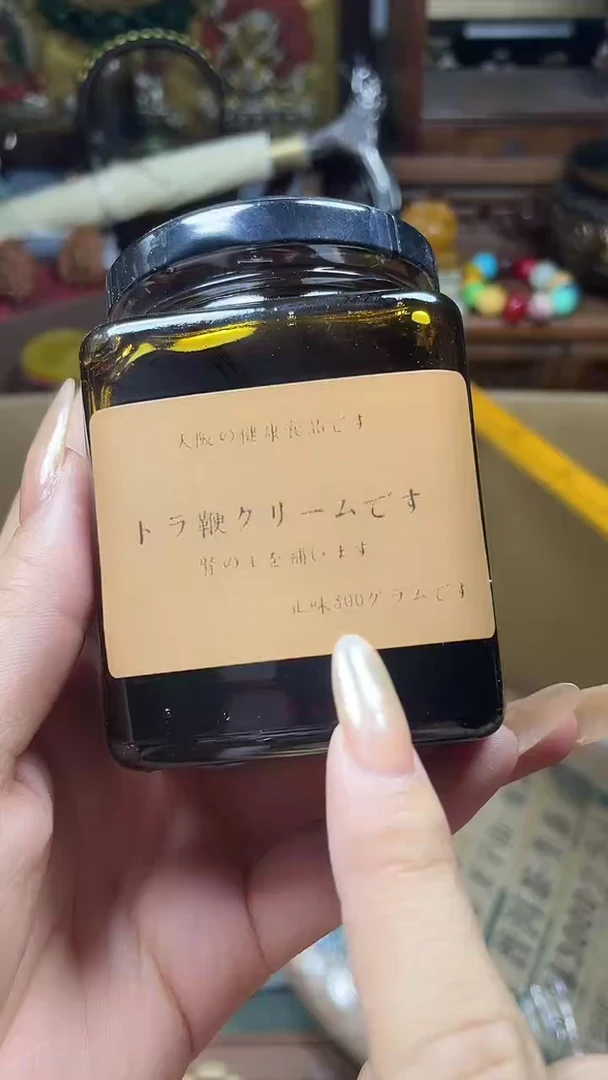 大阪の健康食品です
トラ鞭クリームです
腎の土を補います
正味300グラムです